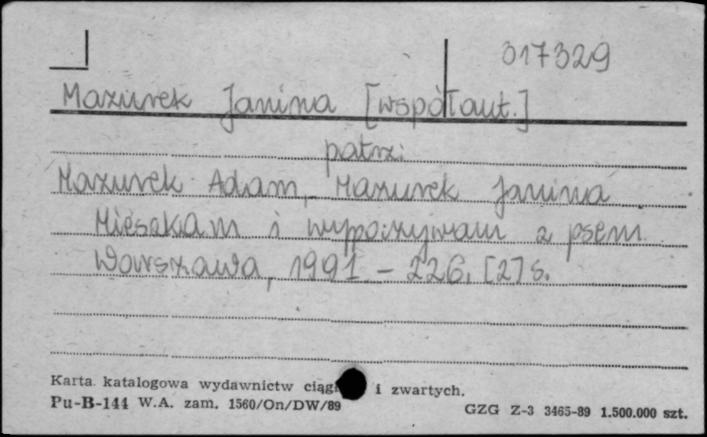 017329
Mazurek Janina [współaut.]
patrz:
Mazurek Adam, Mazurek Janina
Mieszkam i wypoczywam z psem
Warszawa, 1991. – 226, [2] s.
Karta katalogowa wydawnictw ciągł i zwartych.
Pu-B-144 W.A. zam. 1560/On/DW/89
GZG Z-3 3465-89 1.500.000 szt.